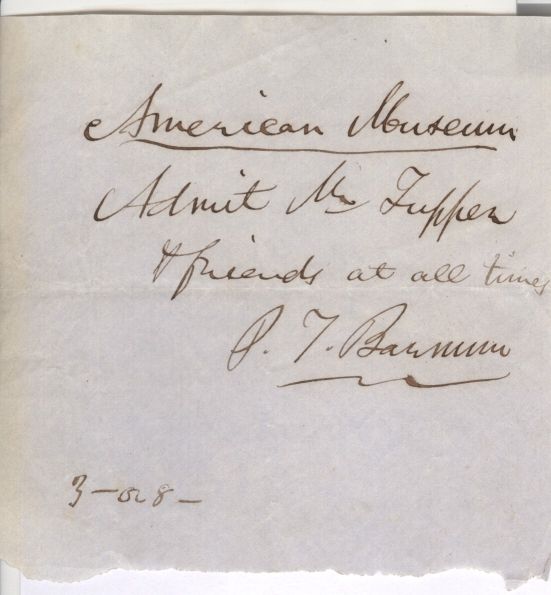 American Museum
Admit Mr Tupper
& friends at all times
P. T. Barnum
3-or 8-